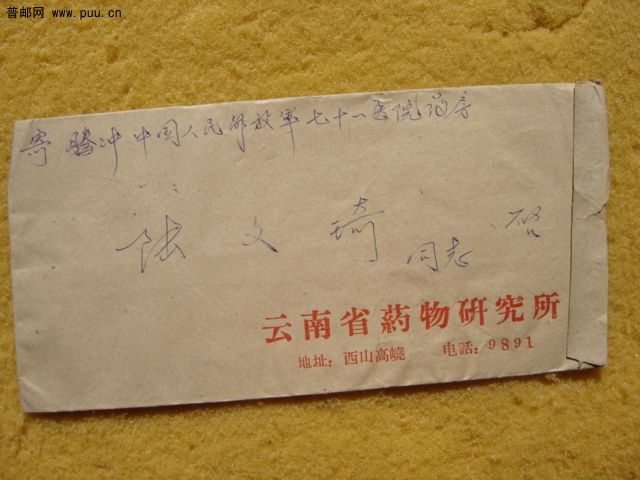 普邮网 www.puu.cn
寄 腾冲 中国人民解放军七十一医院药房
陆文琦 同志 启
云南省药物研究所
地址：西山高峣 电話：9891